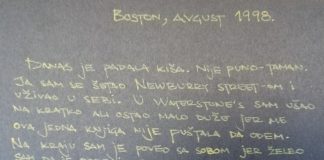 BOSTON, AVGUST 1998.
DANAS JE PADALA KIŠA. NIJE PUNO-TAMAN.
JA SAM SE ŠETAO NEWBURRY STREET-OM I
UŽIVAO U SEBI. U WATERSTONE'S SAM UŠAO
NA KRATKO ALI OSTAO MALO DUŽE JER ME
OVA JEDNA KNJIGA NIJE PUŠTALA DA ODEM.
NA KRAJU SAM JE POVEO SA SOBOM JER ŽELEO
SAM DA JE